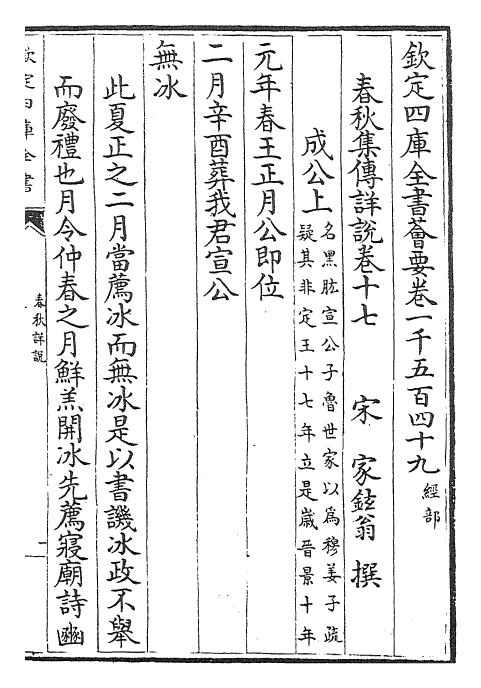 欽定四庫全書薈要卷一千五百四十九 經部
春秋集傳詳說卷十七 宋 家鉉翁 撰
成公上 名黑肱宣公子魯世家以爲穆姜子疏
疑其非定王十七年立是歲晉景十年
元年春王正月公即位
二月辛酉葬我君宣公
無冰
此夏正之二月當薦冰而無冰是以書譏冰政不舉
而廢禮也月令仲春之月鮮羔開冰先薦寢廟詩豳
欽定四庫全書
春秋詳說
一